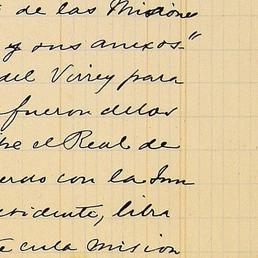 de las Misiones
y sus anexos"
del Virrey para
fueron delos
el Real de
con la Jun
sidente, libra
cula mision